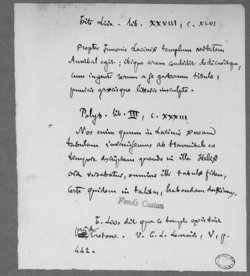 Tit. Live. lib. XXVIII, c. XLVI
Propter Junonis Laciniæ templum æstatem
Annibal egit; ibique aram condidit dedicavitque,
cum ingenti rerum a se gestarum titulo,
punicis græcisque litteris insculpto.
Polyb. lib. III, c. XXXIII
Nos enim quum in Lacinio
tabulam ab Hannibale eo
tempore quando in Italiæ
ora versabatur, omnino illi tabulæ fidem,
certe quidem in talibus, habendam
Fonds Castan
T. Live dit que ce temple
Crotone. V. C. Le V, p.
442.